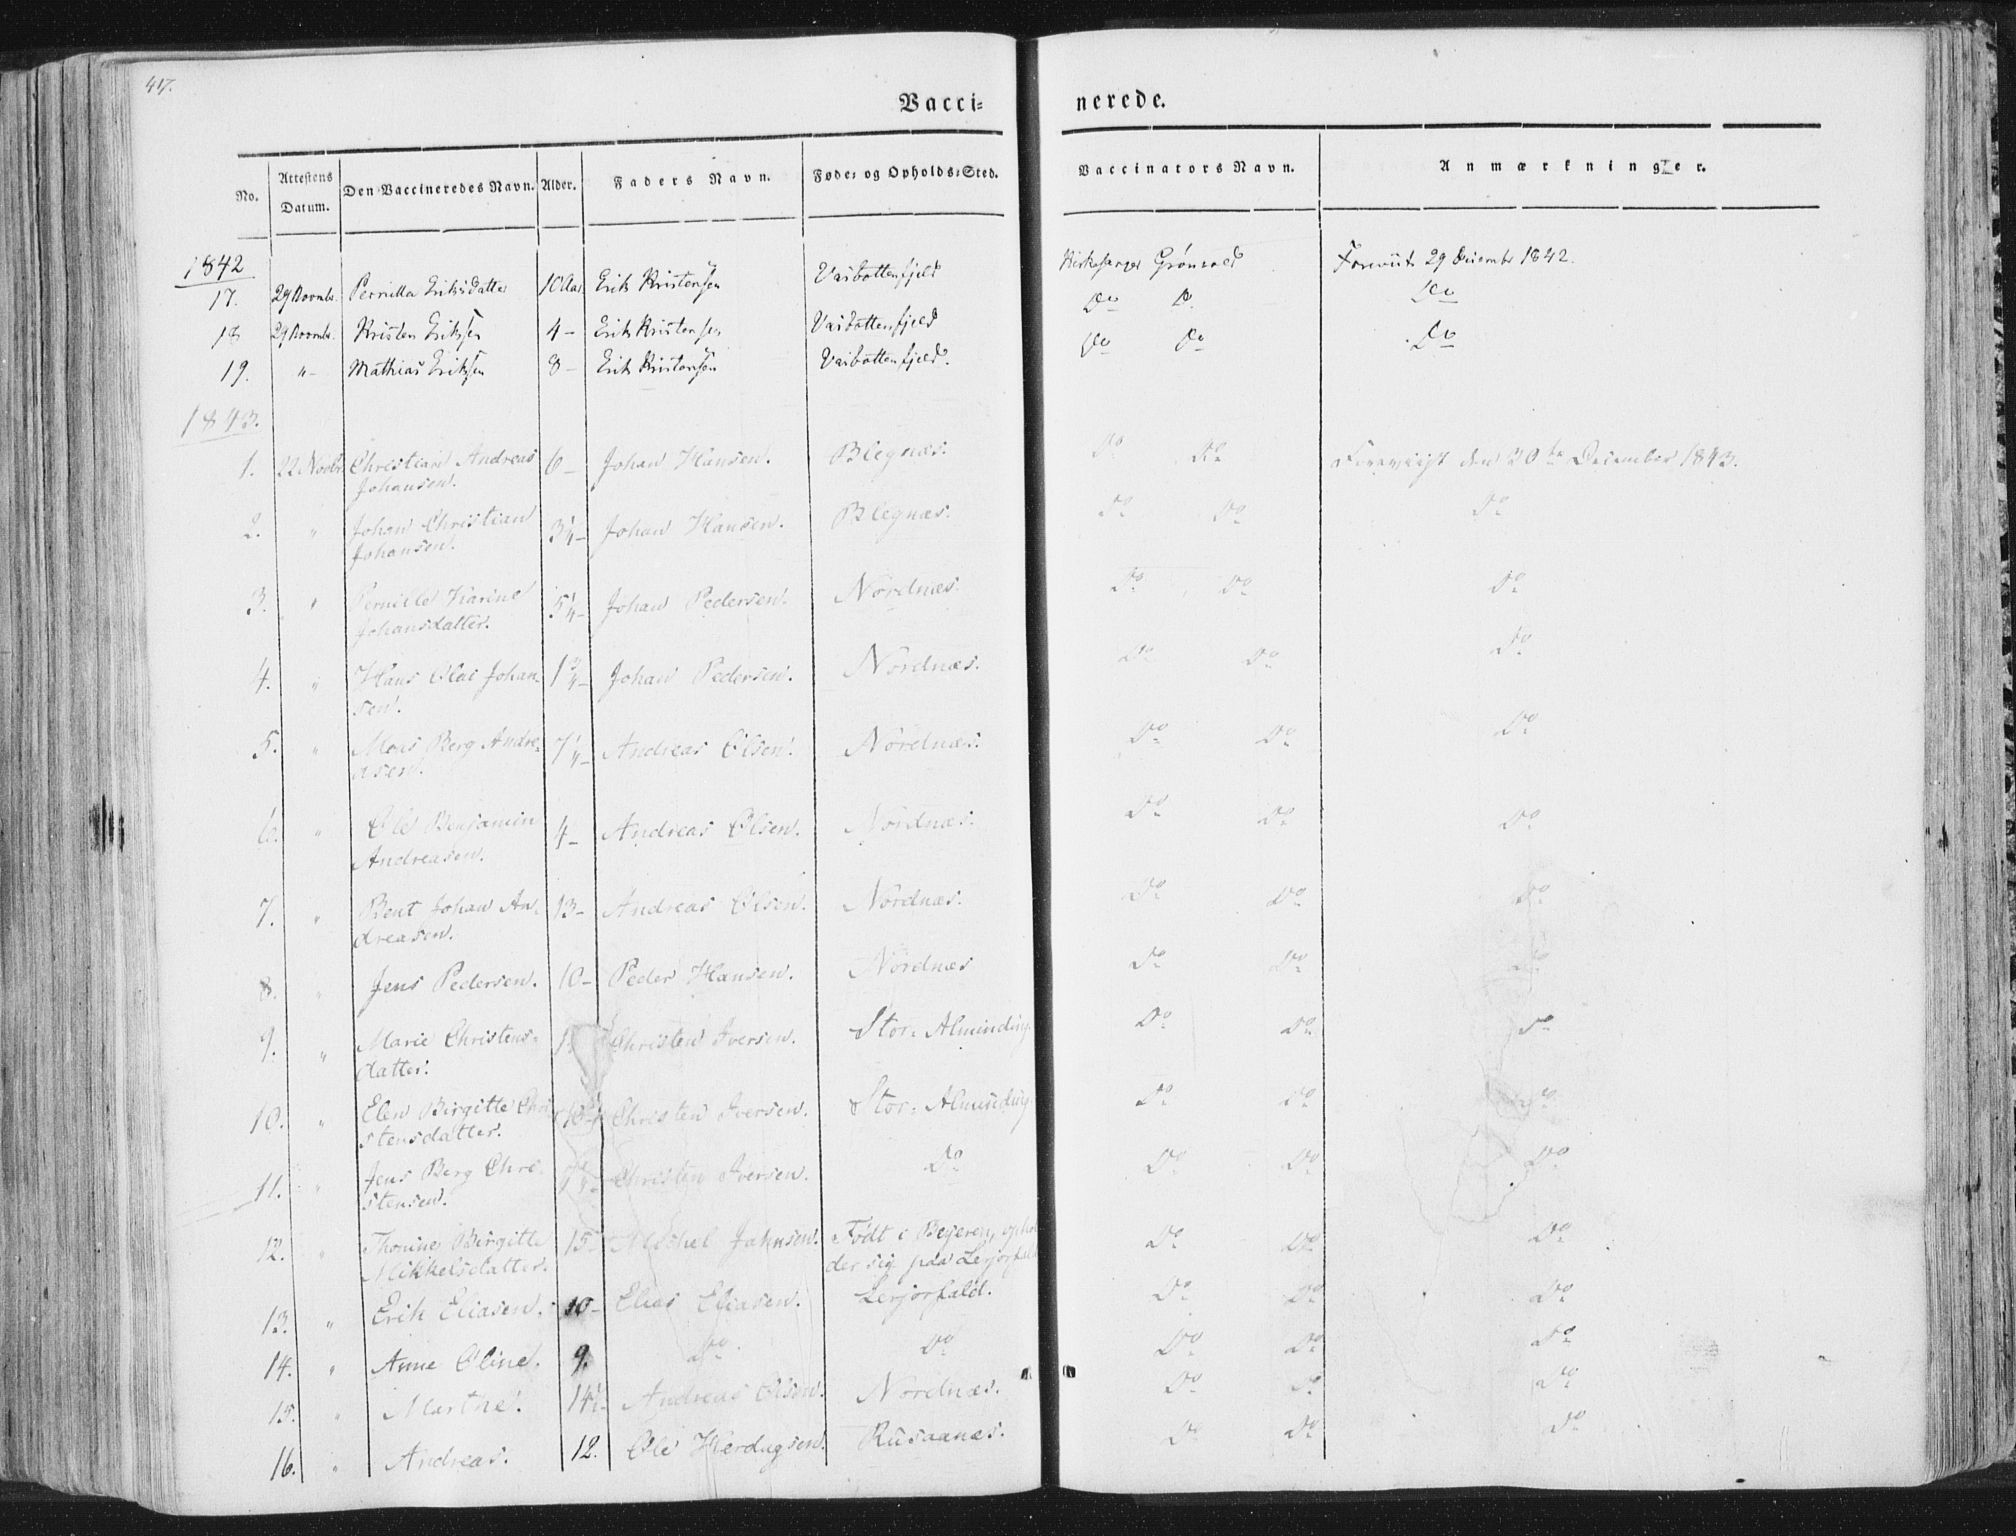 417.
Vacci= nerede.
No. Attestens Datum. Den Vaccineredes Navn. Alder. Faders Navn. Føde= og Opholds=Sted. Vaccinators Navn. Anmærkninger.
1842
17. 29 Novmbr. Pernilla Eriksdatter 10 Aar Erik Kristensen Vasbottenfjeld Kirkesanger Grönvold Foreviist 29 December 1842.
18 29 Novmbr. Kristen Eriksen 4 – Erik Kristensen Vasbottenfjeld Do Do Do
19. " – Mathias Eriksen 8 – Erik Kristensen Vasbottenfjeld. Do Do Do
1843.
1. 22 Novbr. Christian Andreas 6 – Johan Hansen. Blegnæs. Do Do Foreviist den 30te December 1843.
Johansen.
2. " Johan Christian 3¼ – Johan Hansen. Blegnæs. Do Do Do
Johansen.
3. " Pernille Karine 5¼ – Johan Pedersen. Nordnæs. Do Do Do
Johansdatter.
4. " Hans Olai Johan- 1¾ – Johan Pedersen. Nordnæs. Do Do Do
sen.
5. " Mons Berg Andre- 7¼ – Andreas Olsen. Nordnæs. Do Do Do
asen.
6. " Ole Benjamin 4 – Andreas Olsen. Nordnæs. Do Do Do
Andreasen.
7. " Bent Johan An- 13 – Andreas Olsen. Nordnæs. Do Do Do
dreasen.
8. " Jens Pedersen. 10 – Peder Hansen. Nordnæs Do Do Do
9. " Marie Christens- Christen Iversen. Stor= Alminding. Do Do Do
datter.
10. " Elen Birgitte Chri- Christen Iversen. Stor= Alminding. Do Do Do
stensdatter.
11. " Jens Berg Chri- Christen Iversen. Do Do Do Do
stensen.
12. " Thorine Birgitte 15 – Michel Jahnsen. Födt i Bejeren, ophol- Do Do Do
Mikkelsdatter. der sig paa Lerjorfald
13. " Erik Eliasen. 10 – Elias Eliasen. Lerjorfald. Do Do Do
14. " Anne Oline. 9. Do Do Do Do Do
15. " Marthe. 14½ Andreas Olsen. Nordnæs. Do Do Do
16. " Andreas. 12. Ole Herdagsen. Rusaanæs. Do Do Do